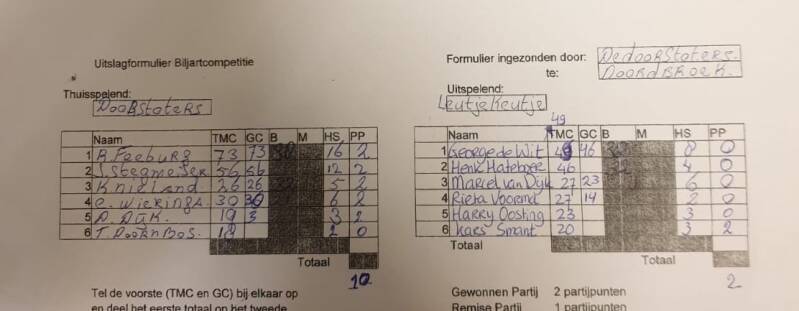 Uitslagformulier Biljartcompetitie
Formulier ingezonden door: De doorStoters.
te: Noordbroek.
Thuisspelend:
DoorStoters
Uitspelend:
Leutje Keutje
49
Naam TMC GC B M HS PP
1 R Feeburg 73 73 30 16 2
2 J. Stegmeijer 56 56 12 2
3 K nieland 26 26 5 2
4 e. wierings 30 30 6 2
5 P. Dijk. 19 3 3 2
6 T. DoornBos. 18 2 0
Totaal
10
Naam TMC GC B M HS PP
1 George de Wit 49 46 8 0
2 Henk Hateboer 46 4 0
3 Marcel van Dijk 27 23 6 0
4 Rieta Voormd 27 14 2 0
5 Harry Oosting 23 3 0
6 Kars Smant 20 3 2
Totaal
Totaal
2
Tel de voorste (TMC en GC) bij elkaar op
en deel het eerste totaal op het tweede
Gewonnen Partij 2 partijpunten
Remise Partij 1 partijpunten